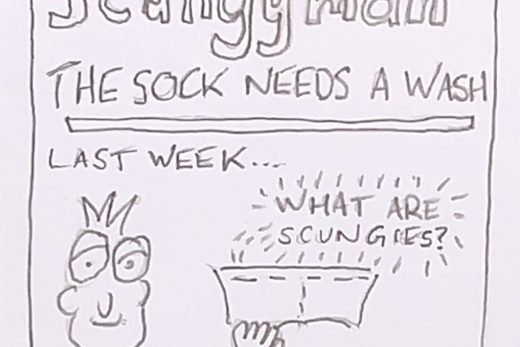 Scungy Man
THE SOCK NEEDS A WASH
LAST WEEK...
WHAT ARE
SCUNGIES?